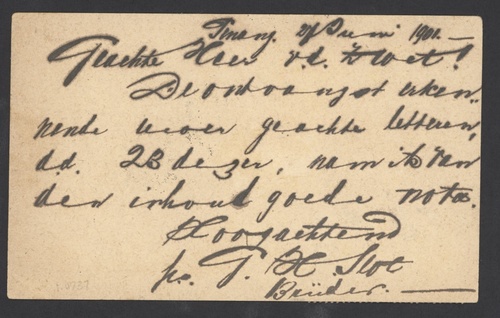 Penang, 29 Juni 1901.—
Geachte Heer v.d. Zwet!
De ontvangst erken-
nende uwer geachte letteren,
dd. 23 dezer, nam ik van
den inhoud goede nota.
Hoogachtend
pr. T. H. Slot
Brüder.—